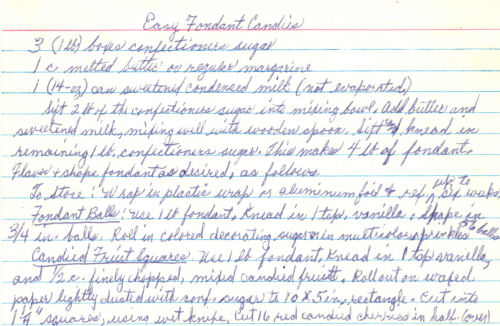 Easy Fondant Candies
3 (1 lb) boxes confectioners sugar
1 c. melted butter or regular margarine
1 (14-oz) can sweetened condensed milk (not evaporated)
Sift 2 lb of the confectioners sugar into mixing bowl. Add butter and
sweetened milk, mixing well with wooden spoon. Sift & knead in
remaining 1 lb. confectioners sugar. This makes 4 lb of fondant.
Flavor & shape fondant as desired, as follows.
To Store: Wrap in plastic wrap or aluminum foil & ref, up to six weeks.
Fondant Balls: Use 1 lb fondant, Knead in 1 tsp. vanilla, shape in
3/4 in. balls. Roll in colored decorating sugar or in multicolor sprinkles 36 balls
Candied Fruit Squares Use 1 lb fondant, Knead in 1 tsp vanilla,
and 1/2 c. finely chopped, mixed candied fruit. Roll out on waxed
paper lightly dusted with conf. sugar to 10 X 5 in, rectangle. Cut into
1 1/4" squares, using wet knife. Cut 16 red candied cherries in half. (over)